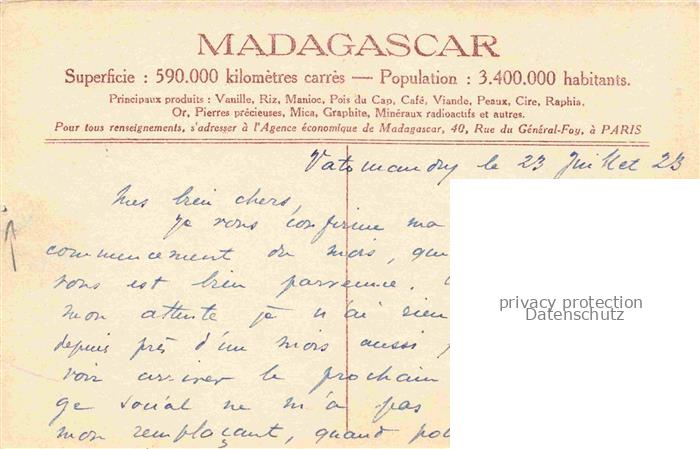 MADAGASCAR
Superficie : 590.000 kilomètres carrès — Population : 3.400.000 habitants.
Principaux produits : Vanille, Riz, Manioc, Pois du Cap, Café, Viande, Peaux, Cire, Raphia,
Or, Pierres précieuses, Mica, Graphite, Minéraux radioactifs et autres.
Pour tous renseignements, s'adresser à l'Agence économique de Madagascar, 40, Rue du Général-Foy, à PARIS
Vatomandry le 23 Juillet 23
Mes bien chers,
je vous confirme ma
commencement du mois, que
vous est bien parvenue.
mon attente je n'ai rien
depuis près d'un mois aussi
voir arriver le prochain
ge social ne m'a pas
mon remplaçant, quand
privacy protection
Datenschutz